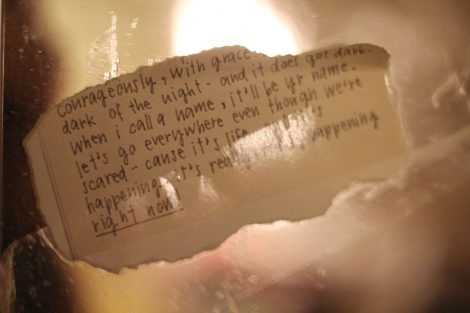 courageously, with grace.
dark of the night - and it does get dark.
when i call a name, it'll be yr name.
let's go everywhere even though we're
scared - cause it's life
happening it's really happening
right now